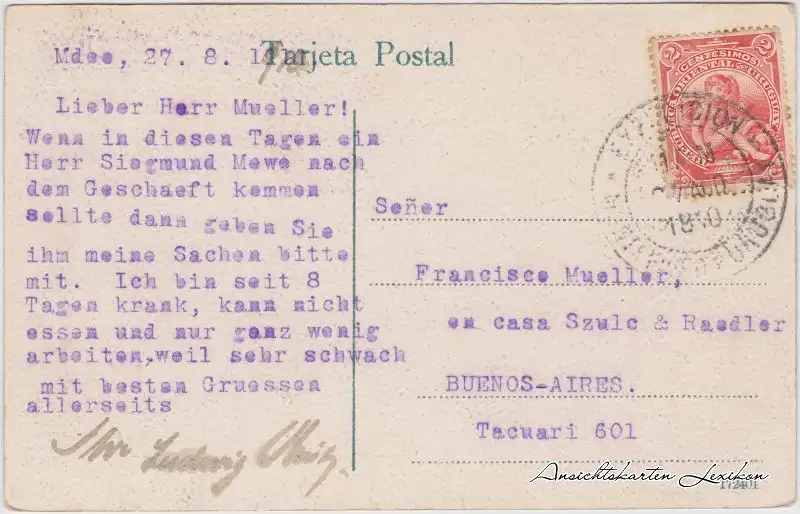 Tarjeta Postal
Mdeo, 27. 8. 1910
Lieber Herr Mueller!
Wenn in diesen Tagen ein
Herr Siegmund Mewe nach
dem Geschaeft kommen
sollte dann geben Sie
ihm meine Sachen bitte
mit. Ich bin seit 8
Tagen krank, kann nicht
essen und nur ganz wenig
arbeiten, weil sehr schwach
mit besten Gruessen
allerseits
Ihr Ludwig
2 CENTESIMOS 2
REPUBLICA ORIENTAL DEL URUGUAY
1910
Señor
Francisco Mueller,
en casa Szulc & Raedler
BUENOS-AIRES.
Tacuari 601
Ansichtskarten Lexikon
172401